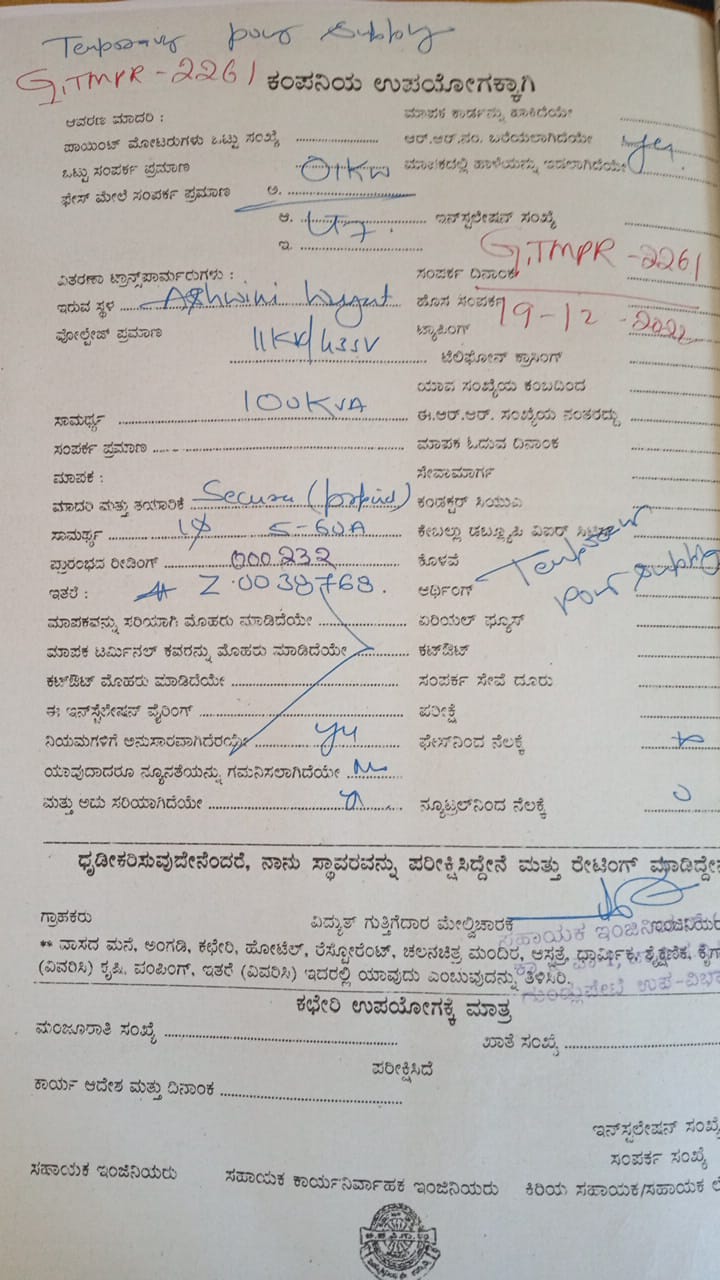 Temporary power supply
G,TMPR-2261 ಕಂಪನಿಯ ಉಪಯೋಗಕ್ಕಾಗಿ
ಆವರಣ ಮಾದರಿ :
ಮಾಪಕ ಕಾರ್ಡನ್ನು ಹಾಕಿದೆಯೇ
ಪಾಯಿಂಟ್ ಮೋಟರುಗಳು ಒಟ್ಟು ಸಂಖ್ಯೆ
ಆರ್.ಆರ್.ನಂ. ಬರೆಯಲಾಗಿದೆಯೇ yes
ಒಟ್ಟು ಸಂಪರ್ಕ ಪ್ರಮಾಣ 01KW
ಮಾಪಕದಲ್ಲಿ ಹಾಳೆಯನ್ನು ಇಡಲಾಗಿದೆಯೇ
ಫೇಸ್ ಮೇಲೆ ಸಂಪರ್ಕ ಪ್ರಮಾಣ ಅ.
ಆ.
ಇನ್‌ಸ್ಟಲೇಷನ್ ಸಂಖ್ಯೆ
ಇ.
G,TMPR-2261
ವಿತರಣಾ ಟ್ರಾನ್ಸ್‌ಫಾರ್ಮರುಗಳು :
ಸಂಪರ್ಕ ದಿನಾಂಕ
ಇರುವ ಸ್ಥಳ Ashwini
ಹೊಸ ಸಂಪರ್ಕ 19-12-2022
ವೋಲ್ಟೇಜ್ ಪ್ರಮಾಣ 11KV/433V
ಟ್ಯಾಪಿಂಗ್
ಟೆಲಿಫೋನ್ ಕ್ರಾಸಿಂಗ್
ಯಾವ ಸಂಖ್ಯೆಯ ಕಂಬದಿಂದ
ಸಾಮರ್ಥ್ಯ 100KVA
ಈ.ಆರ್.ಆರ್. ಸಂಖ್ಯೆಯ ನಂತರದ್ದು
ಸಂಪರ್ಕ ಪ್ರಮಾಣ
ಮಾಪಕ ಓದುವ ದಿನಾಂಕ
ಮಾಪಕ :
ಸೇವಾಮಾರ್ಗ
ಮಾದರಿ ಮತ್ತು ತಯಾರಿಕೆ Secure (prepaid)
ಕಂಡಕ್ಟರ್ ಸಿಯುವಿ
ಸಾಮರ್ಥ್ಯ 1φ 5-60A
ಕೇಬಲ್ಲು ಡಬ್ಲ್ಯೂಪಿ ವಿಐರ್
ಪ್ರಾರಂಭದ ರೀಡಿಂಗ್ 000232
ಕೊಳವೆ Temporary
ಇತರೆ : Z.0038768.
ಅರ್ಥಿಂಗ್ power supply
ಮಾಪಕವನ್ನು ಸರಿಯಾಗಿ ಮೊಹರು ಮಾಡಿದೆಯೇ
ಏರಿಯಲ್ ಫ್ಯೂಸ್
ಮಾಪಕ ಟರ್ಮಿನಲ್ ಕವರನ್ನು ಮೊಹರು ಮಾಡಿದೆಯೇ
ಕಟ್‌ಔಟ್
ಕಟ್‌ಔಟ್ ಮೊಹರು ಮಾಡಿದೆಯೇ
ಸಂಪರ್ಕ ಸೇವೆ ದೂರು
ಈ ಇನ್‌ಸ್ಟೆಲೇಷನ್ ವೈರಿಂಗ್
ಪರೀಕ್ಷೆ
ನಿಯಮಗಳಿಗೆ ಅನುಸಾರವಾಗಿದೆರಯೇ yes
ಫೇಸ್‌ನಿಂದ ನೆಲಕ್ಕೆ
ಯಾವುದಾದರೂ ನ್ಯೂನತೆಯನ್ನು ಗಮನಿಸಲಾಗಿದೆಯೇ
ಮತ್ತು ಅದು ಸರಿಯಾಗಿದೆಯೇ
ನ್ಯೂಟ್ರಲ್‌ನಿಂದ ನೆಲಕ್ಕೆ
ಧೃಡೀಕರಿಸುವುದೇನೆಂದರೆ, ನಾನು ಸ್ಥಾವರವನ್ನು ಪರೀಕ್ಷಿಸಿದ್ದೇನೆ ಮತ್ತು ರೇಟಿಂಗ್ ಮಾಡಿದ್ದೇನೆ
ಗ್ರಾಹಕರು ವಿದ್ಯುತ್ ಗುತ್ತಿಗೆದಾರ ಮೇಲ್ವಿಚಾರಕ ಸಹಾಯಕ ಇಂಜಿನಿಯರ್
** ವಾಸದ ಮನೆ, ಅಂಗಡಿ, ಕಛೇರಿ, ಹೋಟೆಲ್, ರೆಸ್ಟೋರೆಂಟ್, ಚಲನಚಿತ್ರ ಮಂದಿರ, ಆಸ್ಪತ್ರೆ, ಧಾರ್ಮಿಕ, ಶೈಕ್ಷಣಿಕ,
(ವಿವರಿಸಿ) ಕೃಷಿ, ಪಂಪಿಂಗ್, ಇತರೆ (ವಿವರಿಸಿ) ಇದರಲ್ಲಿ ಯಾವುದು ಎಂಬುವುದನ್ನು ತಿಳಿಸಿರಿ.
ಗುಂಡ್ಲುಪೇಟೆ ಉಪ-ವಿಭಾ
ಕಛೇರಿ ಉಪಯೋಗಕ್ಕೆ ಮಾತ್ರ
ಮಂಜೂರಾತಿ ಸಂಖ್ಯೆ
ಖಾತೆ ಸಂಖ್ಯೆ
ಪರೀಕ್ಷಿಸಿದೆ
ಕಾರ್ಯ ಆದೇಶ ಮತ್ತು ದಿನಾಂಕ
ಇನ್‌ಸ್ಟಲೇಷನ್ ಸಂಖ್ಯೆ
ಸಂಪರ್ಕ ಸಂಖ್ಯೆ
ಸಹಾಯಕ ಇಂಜಿನಿಯರು ಸಹಾಯಕ ಕಾರ್ಯನಿರ್ವಾಹಕ ಇಂಜಿನಿಯರು ಕಿರಿಯ ಸಹಾಯಕ/ಸಹಾಯಕ